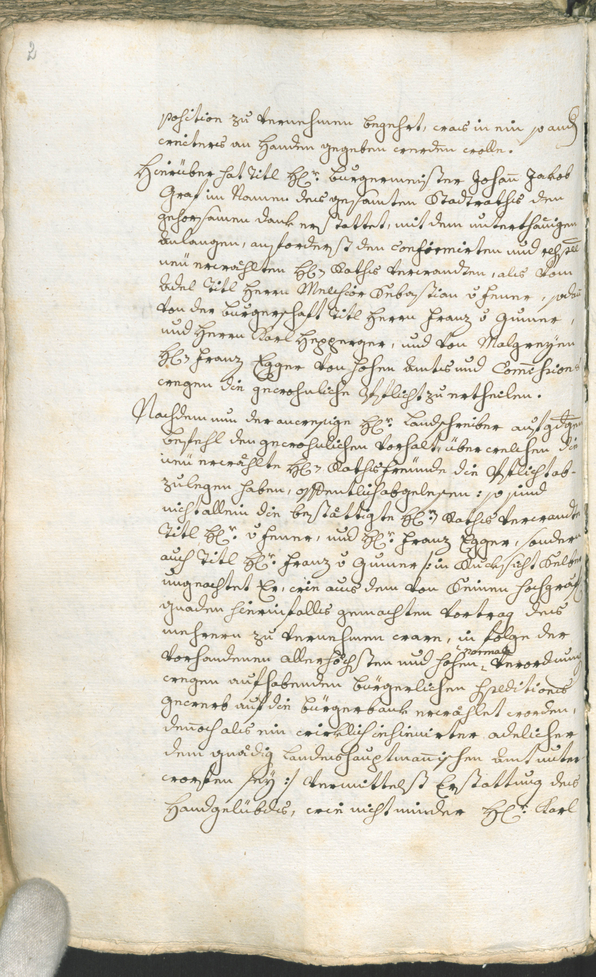 2
position zu vernehmen begehrt, was in ein so and
weiters an handen gegeben werden wolle.
Hierüber hat Titl H: Burgermeister Johann Jakob
Graf im Namen des gesamten Stadtraths den
gehorsamen dank erstattet, mit dem unterthänigen
anlangen, anforderst den confirmirten und
neü erwählten H: Raths verwandten, als vom
Adel Titl Herrn Melchior Sebastian v
von der burgerschaft Titl Herrn Franz v Gumer,
und Herrn Karl Hepperger, und von Malgreyen
H: Franz Egger von hohen Amts und Commission
wegen die gewohnliche Pflicht zu ertheilen.
Nachdem nun der anwesige H: Landschreiber auf
befehl den gewohnlichen Vorhalt, über welchen die
neü erwählte H: Rathsfreünde die Pflicht ab-
zulegen haben, offentlich abgelesen: so sind
nicht allein die bestättigte H: Raths verwandte
Titl H: v und H: Franz Egger, sondern
auch Titl H: Franz v Gumer /: in Rücksicht
ungeachtet Er, wie aus dem von Seinen hochgräf
gnaden hierinfalls gemachten Vortrag des
mehrern zu vernehmen ware, in folge der
vorhandenen allerhöchsten und hohen normal Verordnung
wegen aufhabenden burgerlichen Speditions
gewerb auf die burgerbank erwählet worden,
dennoch als ein wirklich adelicher
dem gnädig Landeshauptmannischen Amt unter
worfen seÿ :/ vermittelst Erstattung des
Handgelübds, wie nicht minder H: Karl